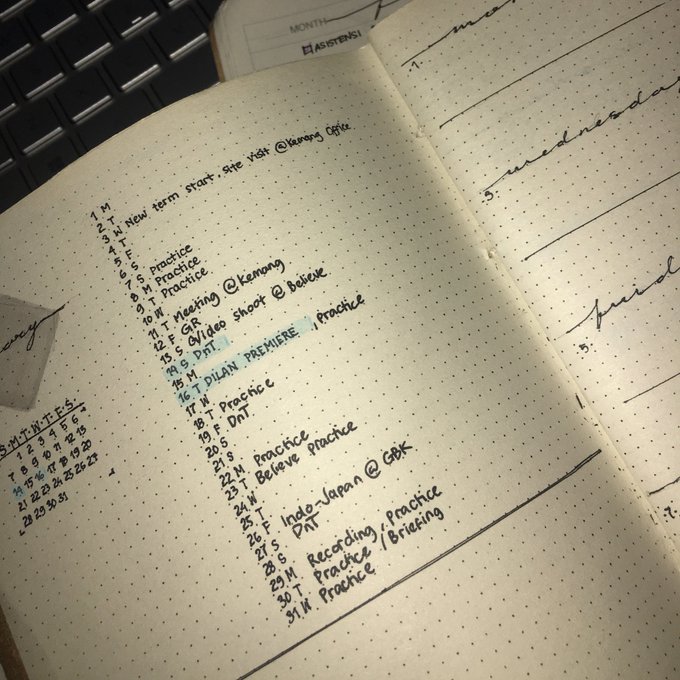 MONTH
ASISTENSI
1 M
2 T
3 W New term start, site visit @Kemang Office
4 T
5 F
6 S
7 S Practice
8 M Practice
9 T Practice
10 W
11 T Meeting @Kemang
12 F GR
13 S Video shoot @ Believe
14 S DnT
15 M
16 T DILAN PREMIERE, Practice
17 W
18 T Practice
19 F DnT
20 S
21 S
22 M Practice
23 T Believe practice
24 W
25 T
26 F Indo-Japan @ GBK
27 S DnT
28 S
29 M Recording, Practice
30 T Practice / Briefing
31 W Practice
S.M.T.W.T.F.S.
1 2 3 4 5 6
7 8 9 10 11 12 13
14 15 16 17 18 19 20
21 22 23 24 25 26 27
28 29 30 31
1.
wednesday
3.
5.
7.